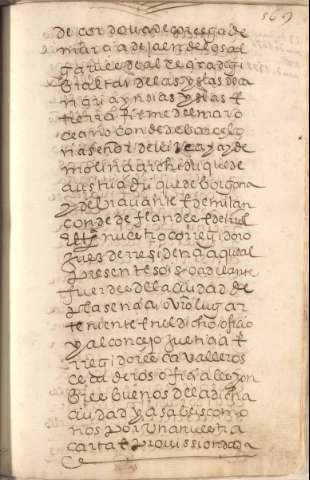 569
de cordova de corcega de
murcia de jaen de los al
garves de algezira de gi
braltar de las yslas de ca
naria yndias yslas e
tierra firme del mar o
ceano conde de barcelo
na señor de vizcaya y de
molina archiduque de
austria duque de borgoña
y de bravante e de milan
conde de flandes e de tirol
etts nuestro corregidor o
juez de residencia que al
presente sois o adelante
fuerdes de la ciudad de
plasencia o vro lugar
teniente en el dicho oficio
y al concejo justicia e
regidores cavalleros
escuderos oficiales y on
bres buenos de la dicha
ciudad ya sabeis como
nos por una nuestra
carta e provission dada